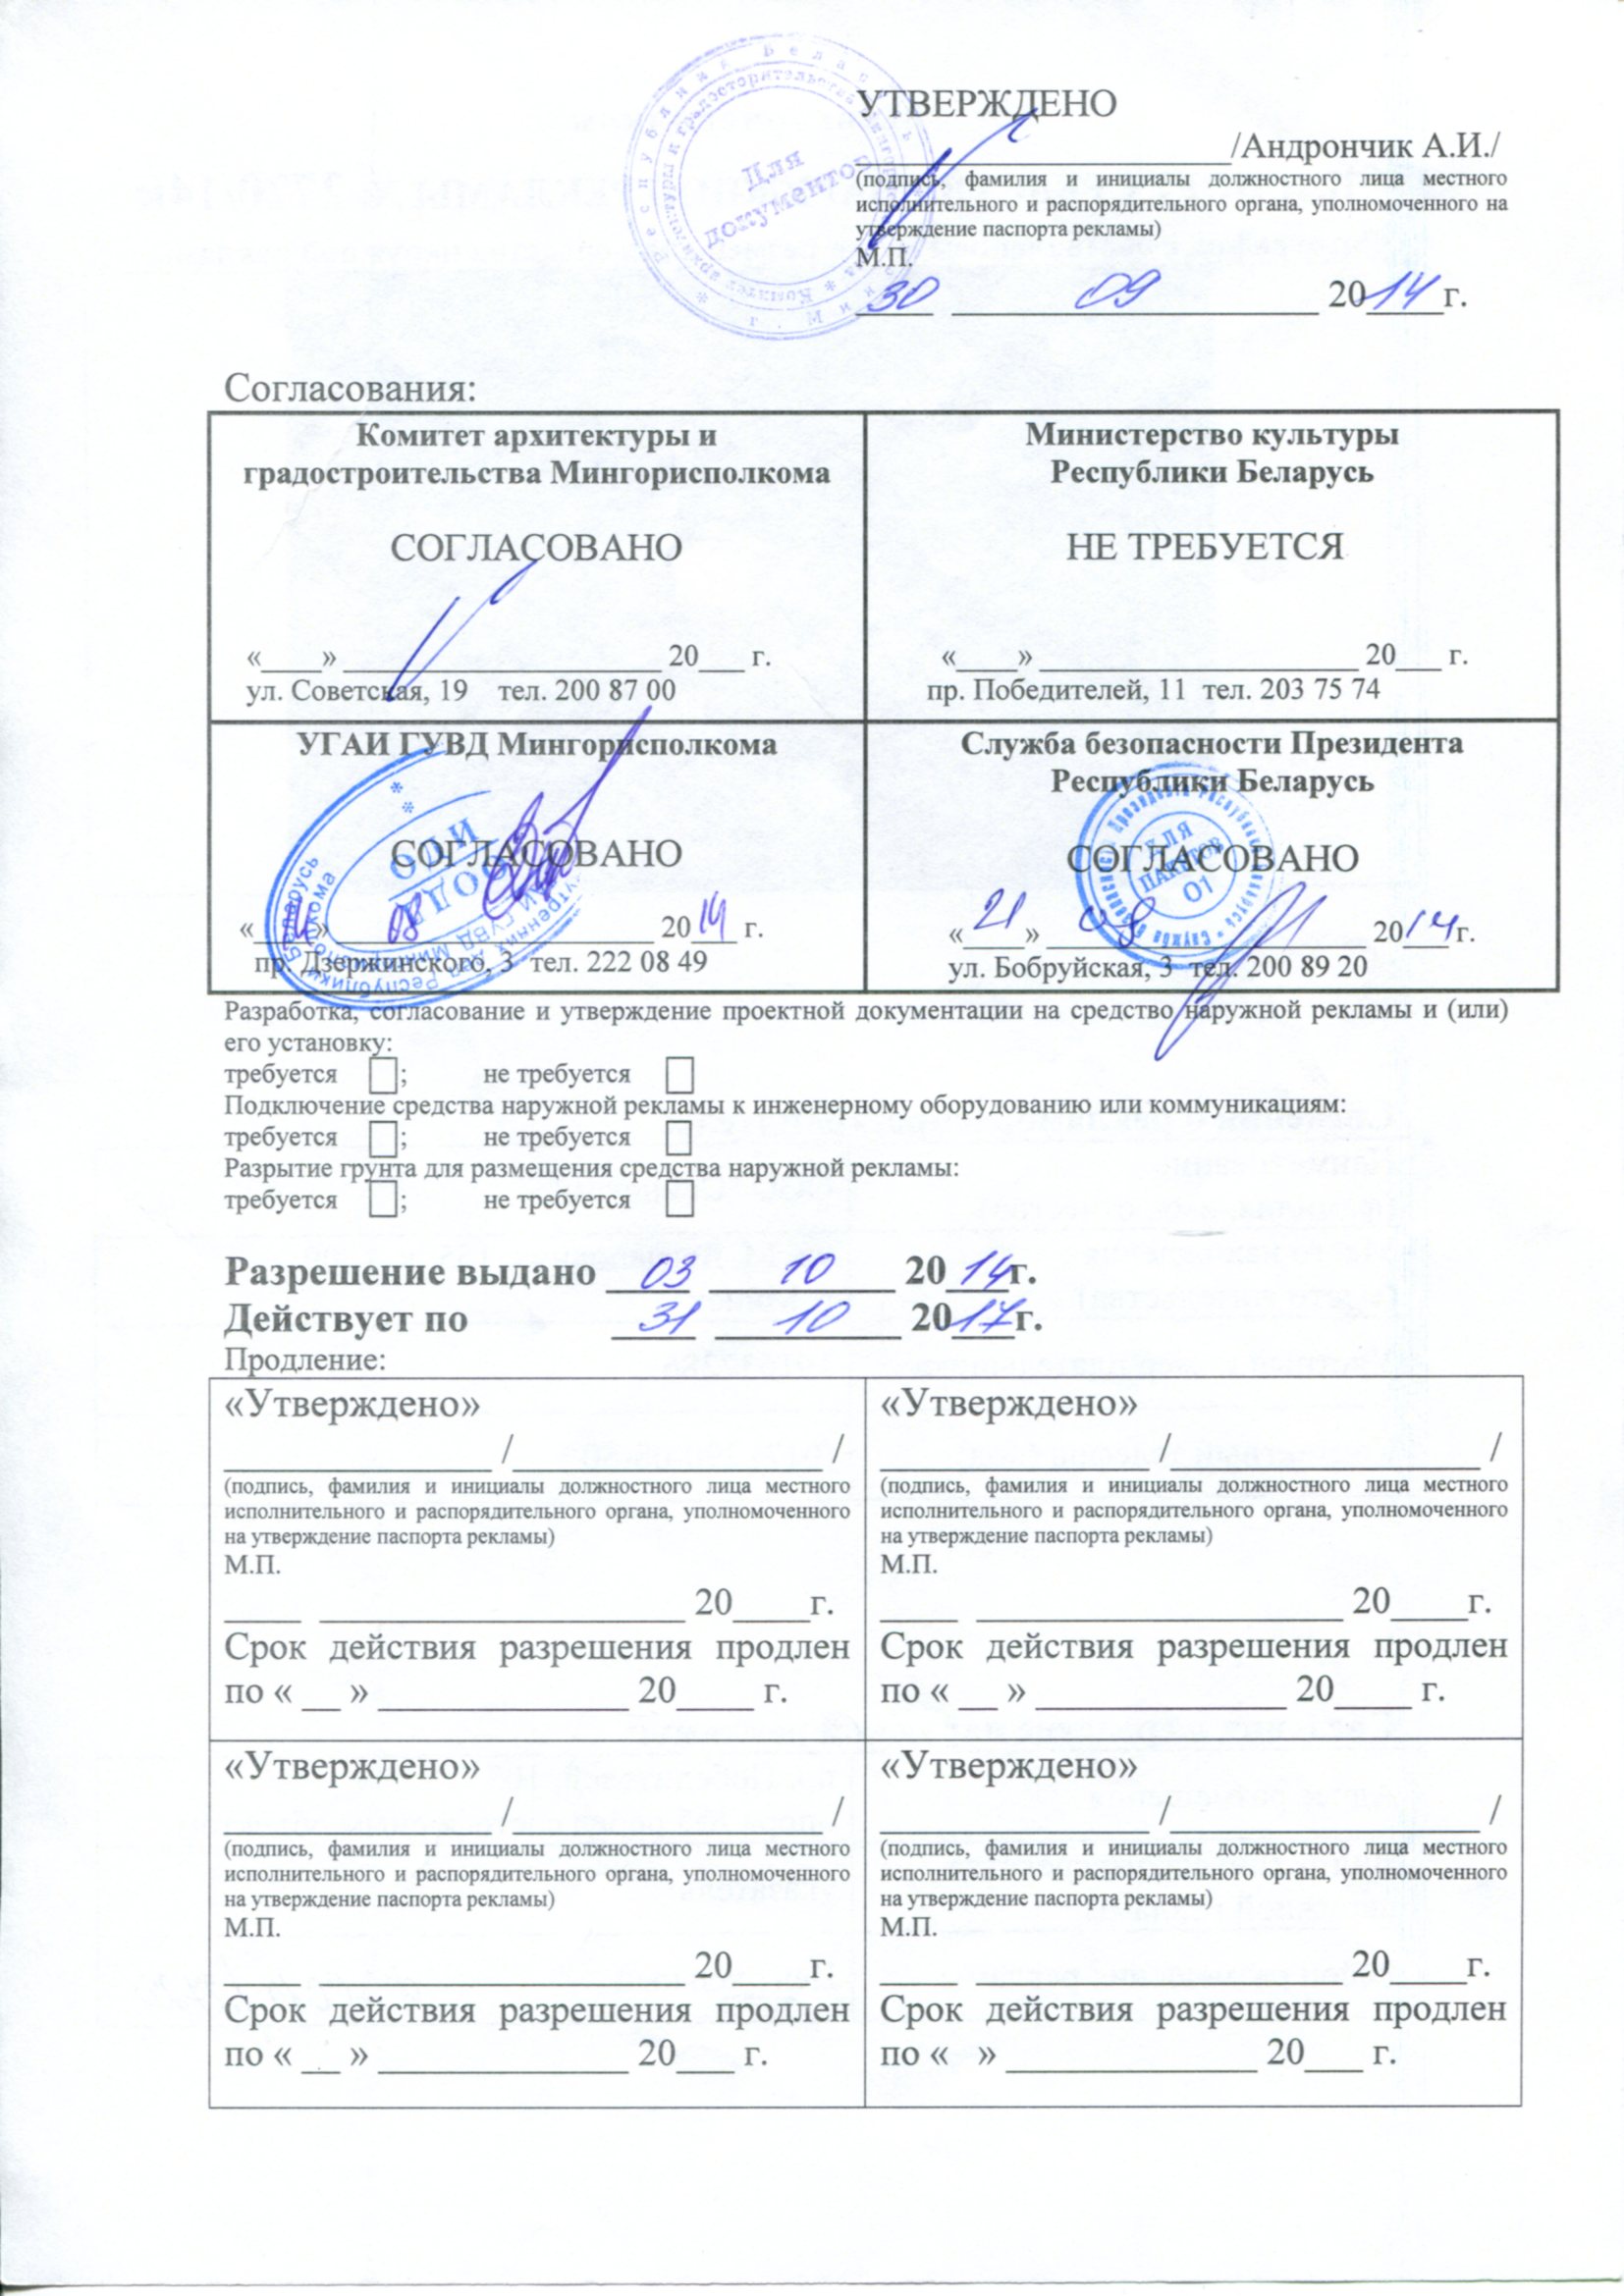 УТВЕРЖДЕНО
____________________/Андрончик А.И./
(подпись, фамилия и инициалы должностного лица местного
исполнительного и распорядительного органа, уполномоченного на
утверждение паспорта рекламы)
М.П.
30 09 2014г.
Республика Беларусь
Для документов
г. Минск
Согласования:
Комитет архитектуры и
градостроительства Мингорисполкома
СОГЛАСОВАНО
«____» ____________________ 20___ г.
ул. Советская, 19 тел. 200 87 00
Министерство культуры
Республики Беларусь
НЕ ТРЕБУЕТСЯ
«____» ____________________ 20___ г.
пр. Победителей, 11 тел. 203 75 74
УГАИ ГУВД Мингорисполкома
СОГЛАСОВАНО
« » 08 2014 г.
пр. Дзержинского, 3 тел. 222 08 49
ОДИ
ОДД
Служба безопасности Президента
Республики Беларусь
СОГЛАСОВАНО
«21» 08 2014 г.
ул. Бобруйская, 3 тел. 200 89 20
ДЛЯ
ПАКЕТОВ
01
Разработка, согласование и утверждение проектной документации на средство наружной рекламы и (или)
его установку:
требуется ; не требуется
Подключение средства наружной рекламы к инженерному оборудованию или коммуникациям:
требуется ; не требуется
Разрытие грунта для размещения средства наружной рекламы:
требуется ; не требуется
Разрешение выдано 03 10 2014г.
Действует по 31 10 2017г.
Продление:
«Утверждено»
______________ /________________ /
(подпись, фамилия и инициалы должностного лица местного
исполнительного и распорядительного органа, уполномоченного
на утверждение паспорта рекламы)
М.П.
____ ___________________ 20____г.
Срок действия разрешения продлен
по « __ » _____________ 20____ г.
«Утверждено»
______________ /________________ /
(подпись, фамилия и инициалы должностного лица местного
исполнительного и распорядительного органа, уполномоченного
на утверждение паспорта рекламы)
М.П.
____ ___________________ 20____г.
Срок действия разрешения продлен
по « __ » _____________ 20____ г.
«Утверждено»
______________ /________________ /
(подпись, фамилия и инициалы должностного лица местного
исполнительного и распорядительного органа, уполномоченного
на утверждение паспорта рекламы)
М.П.
____ ___________________ 20____г.
Срок действия разрешения продлен
по « __ » _____________ 20___ г.
«Утверждено»
______________ /________________ /
(подпись, фамилия и инициалы должностного лица местного
исполнительного и распорядительного органа, уполномоченного
на утверждение паспорта рекламы)
М.П.
____ ___________________ 20____г.
Срок действия разрешения продлен
по « » _____________ 20___ г.